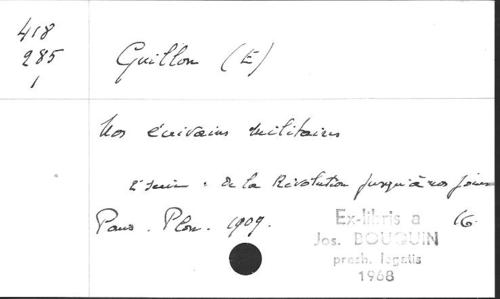 418
285
1
Guillon (E)
Nos écrivains militaires
2e série : de la Révolution jusqu'à nos jours
Paris. Plon. 1909. 16.
Ex-libris a
Jos. BOUGUIN
presb. legatis
1968